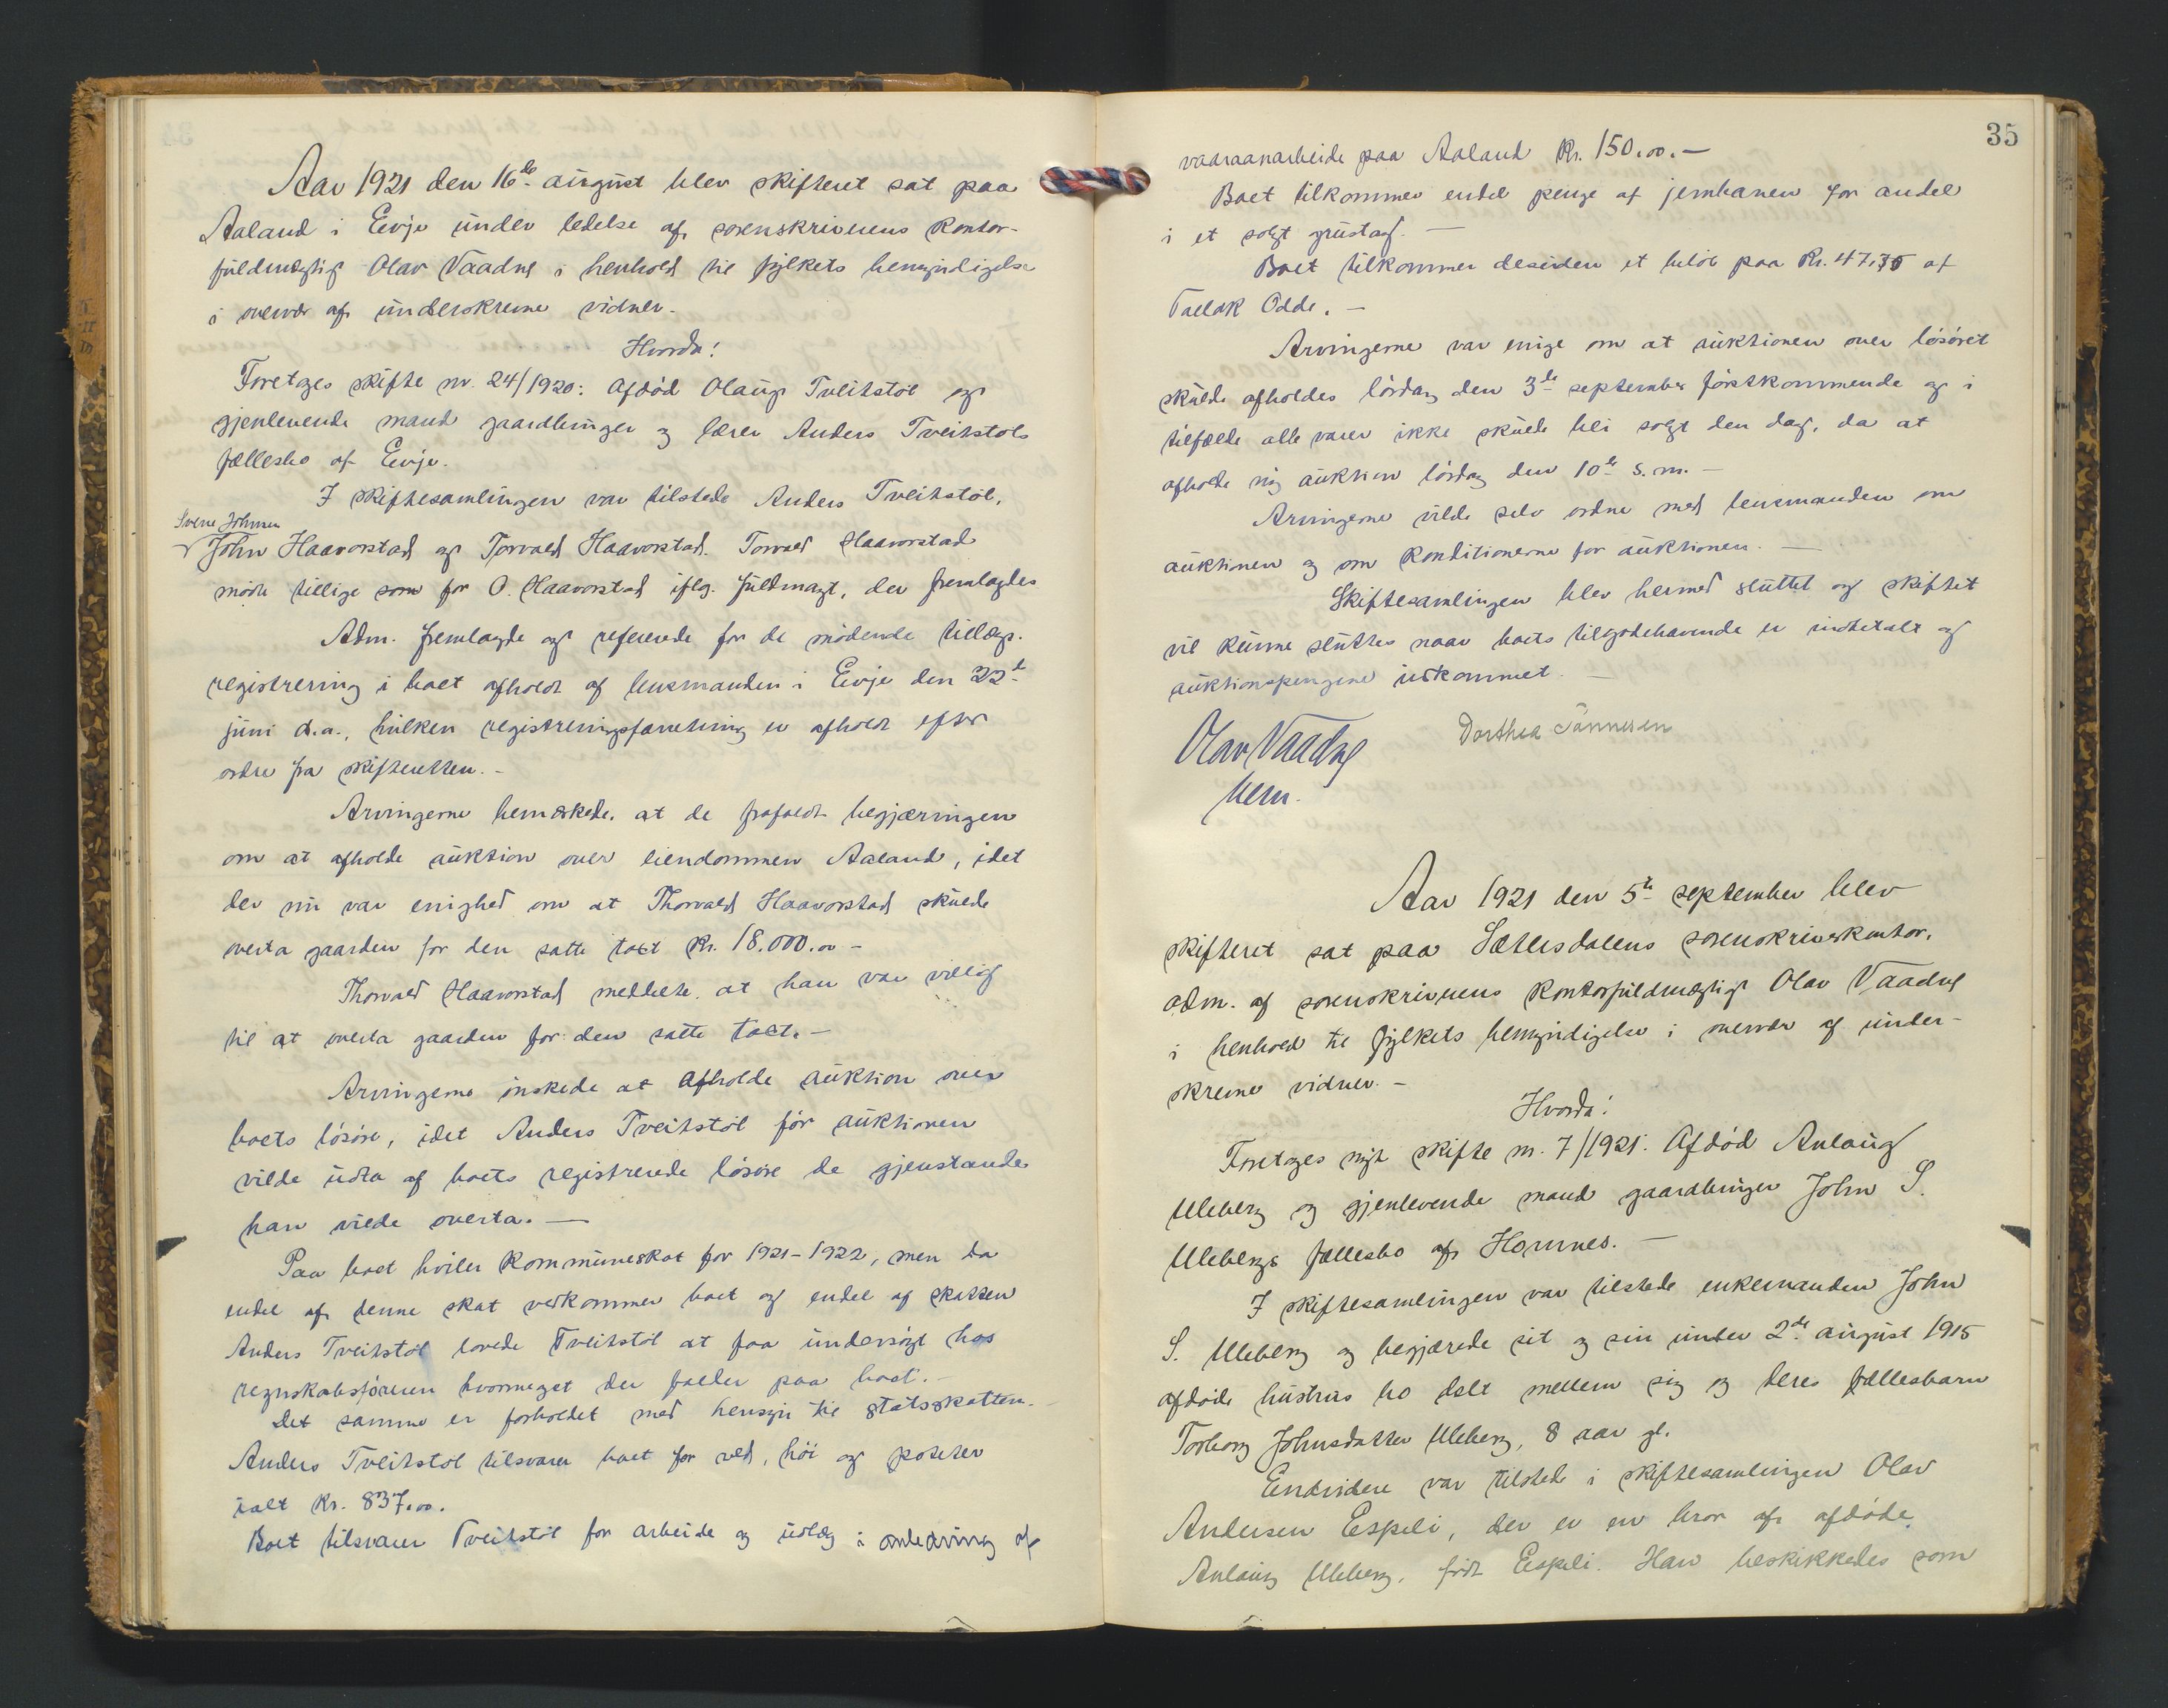 Aar 1921 den 16de august blev skifteret sat paa
Aaland i Evje under ledelse af sorenskriverens kontor-
fuldmægtig Olav Vaadne i henhold til fylkets bemyndigelse
i overvær af underskrevne vidner.
Hvorda!
Foretoges skifte nr. 24/1920: Afdød Olaug Tveitstøl og
gjenlevende mand gaardbruger og lærer Anders Tveitstøls
fællesbo af Evje.
I skiftesamlingen var tilstede Anders Tveitstøl,
Svene Johnsen
John Haavorstad og Torvald Haavorstad. Torvald Haavorstad
møtte tillige som for O. Haavorstad iflg. fuldmagt, der fremlagdes
Adm. fremlagde og refererede for de mødende tillægs-
registrering i boet afholdt af lensmanden i Evje den 22de
juni d.a., hvilken registreringsforretning er afholdt efter
ordre fra skifteretten. -
Arvingerne bemerkede, at de frafaldt begjæringen
om at afholde auktion over eiendommen Aaland, idet
der nu var enighed om at Thorvald Haavorstad skulde
overta gaarden for den satte takst Kr. 18.000.00 -
Thorvald Haavorstad meddelte, at han var villig
til at overta gaarden for den satte takst. -
Arvingerne ønskede at afholde auktion over
boets løsøre, idet Anders Tveitstøl før auktionen
vilde udta af boets registrerede løsøre de gjenstande
han vilde overta. -
Paa boet hviler kommuneskat for 1921-1922, men da
endel af denne skat vedkommer boet og endel af skatten
Anders Tveitstøl lovede Tveitstøl at faa undersøgt hos
regnskabsføreren hvormeget der falder paa boet. -
Det samme er forholdet med hensyn til statsskatten. -
Anders Tveitstøl tilsvarer boet for ved, høi og poteter
ialt Kr. 837.00.
Boet tilsvarer Tveitstøl for arbeide og utlæg i anledning af
35
vaaraanarbeide paa Aaland Kr. 150.00. -
Boet tilkommer endel penge af jernbanen for andel
i et solgt grustag. -
Boet tilkommer desuden et beløb paa Kr. 47.75 af
Tallak Odde. -
Arvingerne var enige om at auktionen over løsøret
skulde afholdes lørdag den 3de september førstkommende og i
tilfælde alle varer ikke skulde bli solgt den dag, da at
afholde ny auktion lørdag den 10de s.m. -
Arvingerne vilde selv ordne med lensmanden om
auktionen og om konditionerne for auktionen. -
Skiftesamlingen blev hermed sluttet og skiftet
vil kunne sluttes naar boets tilgodehavende er indbetalt og
auktionspengene indkommet. -
Olav Vaadne Dorthea Tønnesen
bem.
Aar 1921 den 5te september blev
skifteret sat paa Sætesdalens sorenskriverkontor,
adm. af sorenskriverens kontorfuldmægtig Olav Vaadne
i henhold til fylkets bemyndigelse i overvær af under-
skrevne vidner. -
Hvorda!
Foretoges nyt skifte nr. 7/1921: Afdød Anlaug
Uleberg og gjenlevende mand gaardbruger John S.
Ulebergs fællesbo af Hornnes. -
I skiftesamlingen var tilstede enkemanden John
S. Uleberg og begjærede sit og sin under 2de august 1915
afdøde hustrus bo delt mellem sig og deres fællesbarn
Torborg Johnsdatter Uleberg, 8 aar gl.
Endvidere var tilstede i skiftesamlingen Olav
Andersen Espeli, der er en bror af afdøde
Anlaug Uleberg, født Espeli. Han beskikkedes som